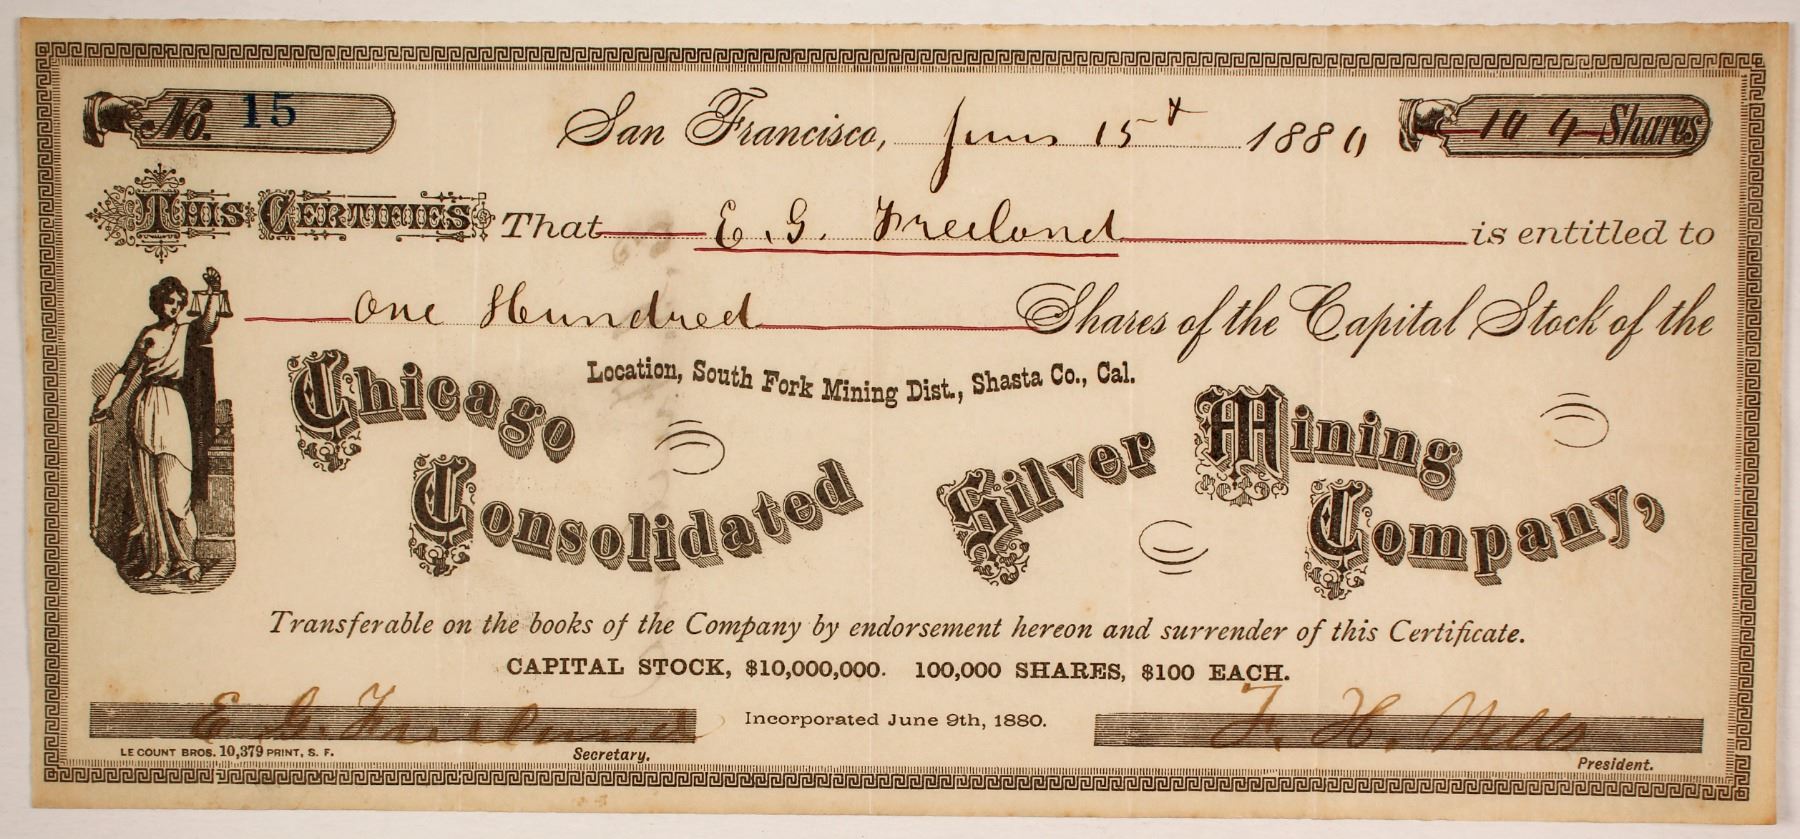 No. 15
San Francisco, June 15th 1880
100 Shares
THIS CERTIFIES That E. G. Freelond is entitled to
One Hundred Shares of the Capital Stock of the
Location, South Fork Mining Dist., Shasta Co., Cal.
Chicago Consolidated Silver Mining Company,
Transferable on the books of the Company by endorsement hereon and surrender of this Certificate.
CAPITAL STOCK, $10,000,000. 100,000 SHARES, $100 EACH.
E. G. Freelund
Incorporated June 9th, 1880.
F. H. Wells
LE COUNT BROS. 10,379 PRINT, S. F.
Secretary.
President.